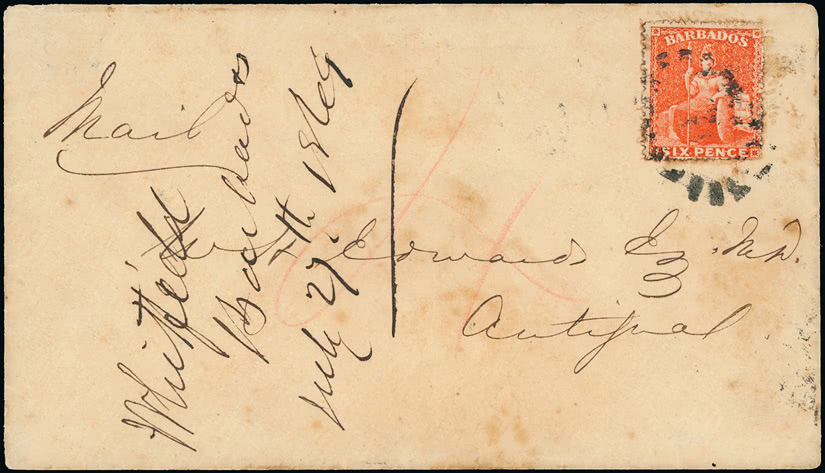 BARBADOS
SIX PENCE
Mail
Edwards Esq. M.D.
Antigua
Whitfield
Barbados
July 27th